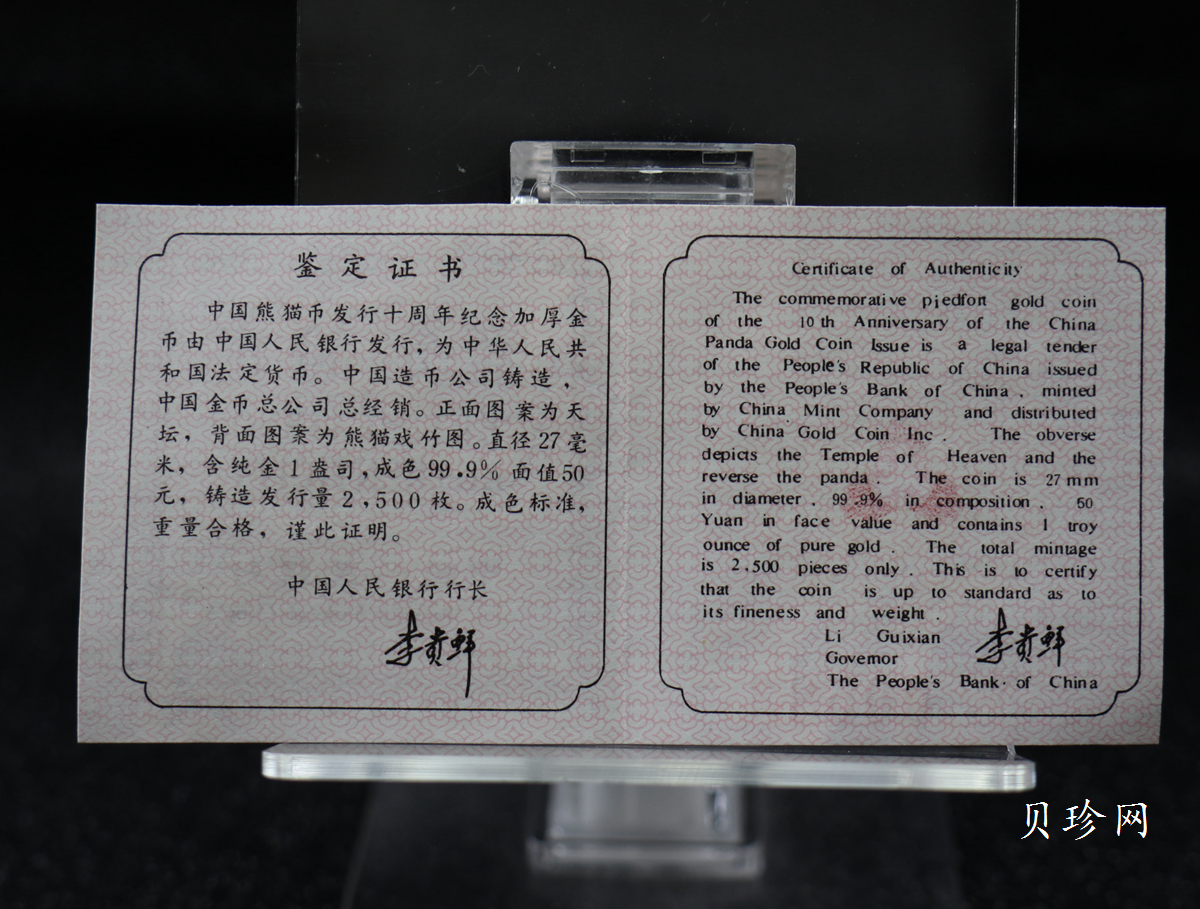 鉴定证书
中国熊猫币发行十周年纪念加厚金
币由中国人民银行发行，为中华人民共
和国法定货币。中国造币公司铸造，
中国金币总公司总经销。正面图案为天
坛，背面图案为熊猫戏竹图。直径27毫
米，含纯金1盎司，成色99.9% 面值50
元，铸造发行量2,500枚。成色标准，
重量合格，谨此证明。
中国人民银行行长
李贵鲜
Certificate of Authenticity
The commemorative pjedfort gold coin
of the 10th Anniversary of the China
Panda Gold Coin Issue is a legal tender
of the People's Republic of China issued
by the People's Bank of China , minted
by China Mint Company and distributed
by China Gold Coin Inc . The obverse
depicts the Temple of Heaven and the
reverse the panda . The coin is 27mm
in diameter . 99.9% in composition . 50
Yuan in face value and contains 1 troy
ounce of pure gold . The total mintage
is 2,500 pieces only . This is to certify
that the coin is up to standard as to
its fineness and weight .
Li Guixian 李贵鲜
Governor
The People's Bank of China
贝珍网